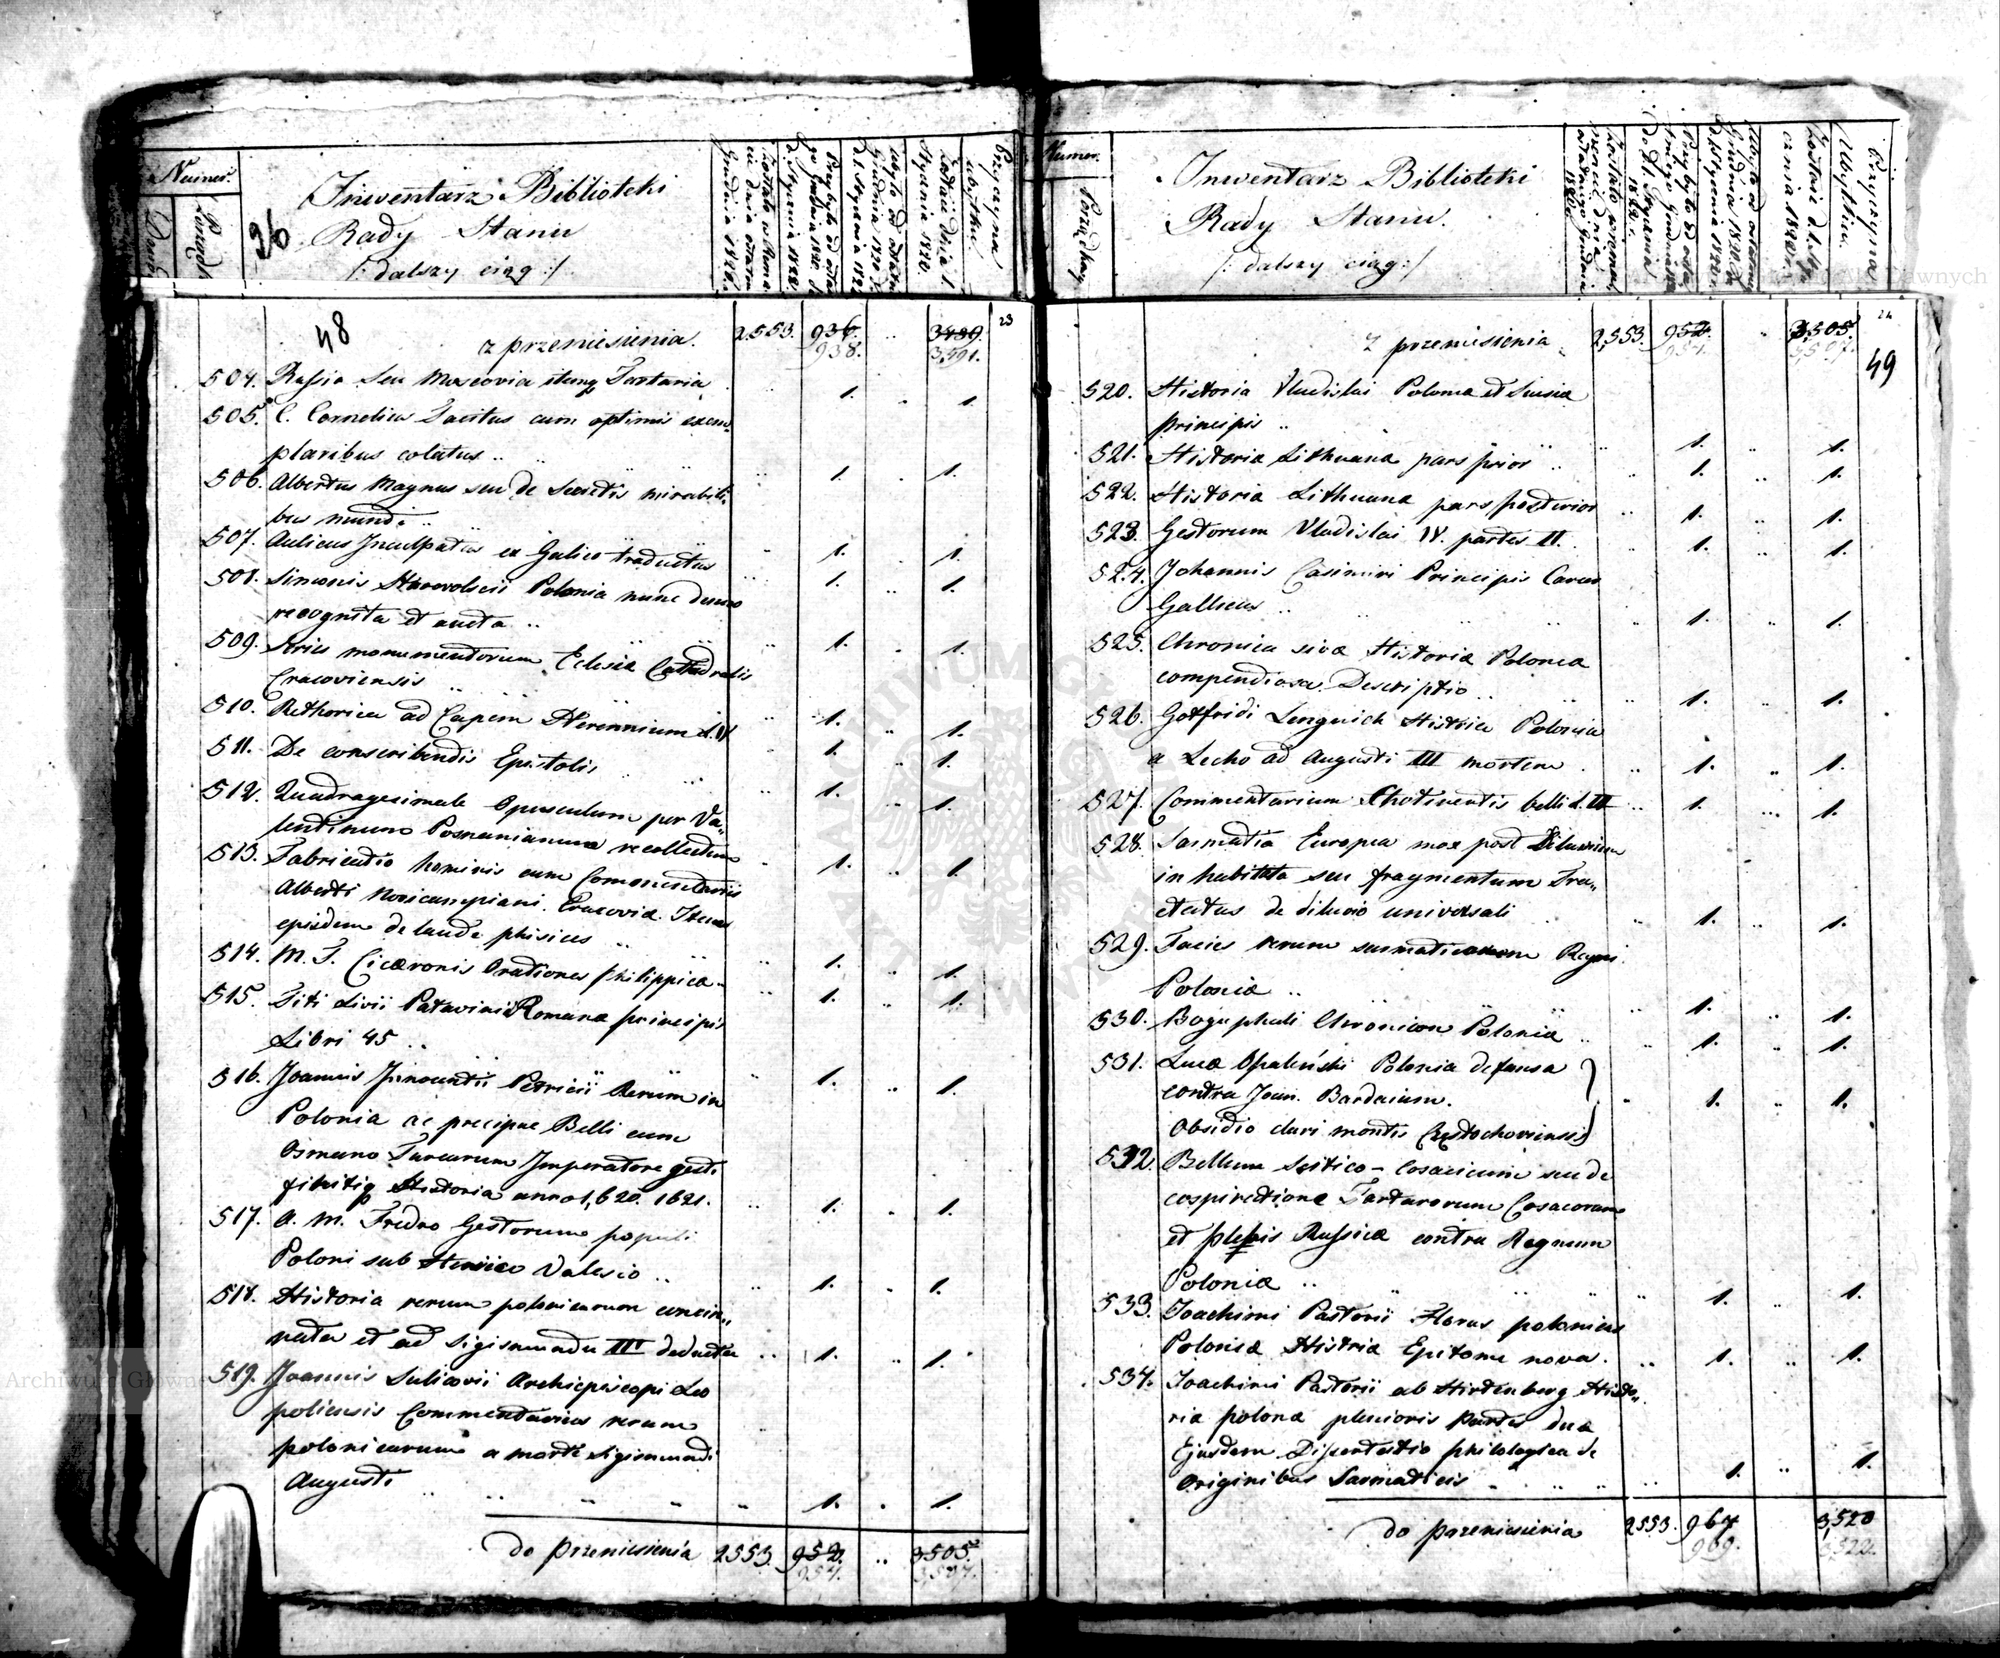 Numer.
Porządk.
36
Inwentarz Biblioteki
Rady Stanu
/: dalszy ciąg :/
Przyczyna
ubytku.
48
z przeniesienia. 2553. 936. .. 3489. 23
938. 3,491.
504. Russia Seu Moscovia itemq Tartaria 1. .. 1.
505. C. Cornelius Tacitus cum optimis exem=
plaribus colatus .. .. 1. .. 1.
506. Albertus Magnus seu de Secretis mirabili=
bus mundi .. 1. .. 1.
507. Aulicus Inculpatus ex Galico traductus 1. .. 1.
508. Simonis Starovolscii Polonia nunc denuo
recognita et aucta .. 1. .. 1.
509. Series monumentorum Eclesiæ Cathedralis
Cracoviensis .. 1. .. 1.
510. Rethorica ad Cajum Herennium L. IV 1. .. 1.
511. De conscribendis Epistolis 1. .. 1.
512. Quadragesimale Opusculum per Va=
lentinum Posnanianum recollectum 1. .. 1.
513. Fabricatio hominis cum Commentariis
Alberti Novicampiani. Cracoviæ. Item
ejusdem de laude phisices .. 1. .. 1.
514. M. T. Ciceronis Orationes philippicæ 1. .. 1.
515. Titi Livii Patavini Romanæ principis
Libri 45 .. 1. .. 1.
516. Joannis Innocentii Petricii Rerum in
Polonia ac precipue Belli cum
Osmano Turcarum Imperatore gesti
finitiq Historia anno 1,620. 1621. 1. .. 1.
517. A. M. Fredro Gestorum populi
Poloni sub Henrico Valesio .. 1. .. 1.
518. Historia rerum polonicarum concin=
nata et ad Sigismundu III deducta .. 1. .. 1.
519. Joannis Sulicovii Archiepiscopi Leo
poliensis Commentarius rerum
polonicarum a morte Sigismundi
Augusti .. .. .. .. .. 1. .. 1.
do przeniesienia 2553. 952. .. 3505.
954. 3,507.
Numer.
Porządkowy
Inwentarz Biblioteki
Rady Stanu.
/: dalszy ciąg :/
Przyczyna
Ubytku.
z przeniesienia 2,553. 952. .. 3,505. 24
954. 3,507.
49
520. Historia Vladislai Poloniæ et Sueciæ
principis .. 1. .. 1.
521. Historiæ Lithuanæ pars prior .. 1. .. 1.
522. Historiæ Lithuanæ pars posterior 1. .. 1.
523. Gestorum Vladislai IV. partes II. 1. .. 1.
524. Johannis Casimiri Principis Carcer
Gallicus .. 1. .. 1.
525. Chronica sive Historiæ Polonicæ
compendiosa Descriptio .. 1. .. 1.
526. Gotfridi Lengnich Histria Polonia
a Lecho ad Augusti III mortem . 1. .. 1.
527. Commentarium Chotinensis belli L. III .. 1. .. 1.
528. Sarmatia Europea mox post Diluvium
inhabitata seu fragmentum Tra=
ctatus de diluvio universali 1. .. 1.
529. Facies rerum sarmaticarum Regni
Poloniæ .. 1. .. 1.
530. Boguphali Chronicon Poloniæ .. 1. .. 1.
531. Lucæ Opaleński Polonia defensa
contra Joan. Bardaium. 1. .. 1.
Obsidio clari montis Częstochoviensis
532. Bellum Scitico - Cosacicum seu de
cospiratione Tartarorum Cosacorum
et plebis Russicæ contra Regnum
Poloniæ .. 1. .. 1.
533. Joachimi Pastorii Florus polonicus
Poloniæ Histriæ Epitome nova. .. 1. .. 1.
534. Joachimi Pastorii ab Hirtenberg Histo=
riæ polonæ plenioris Partes duæ
Ejusdem Dissertatio philologica de
Originibus Sarmaticis .. 1. .. 1.
do przeniesienia 2553. 967 3,520
969. 3,522.